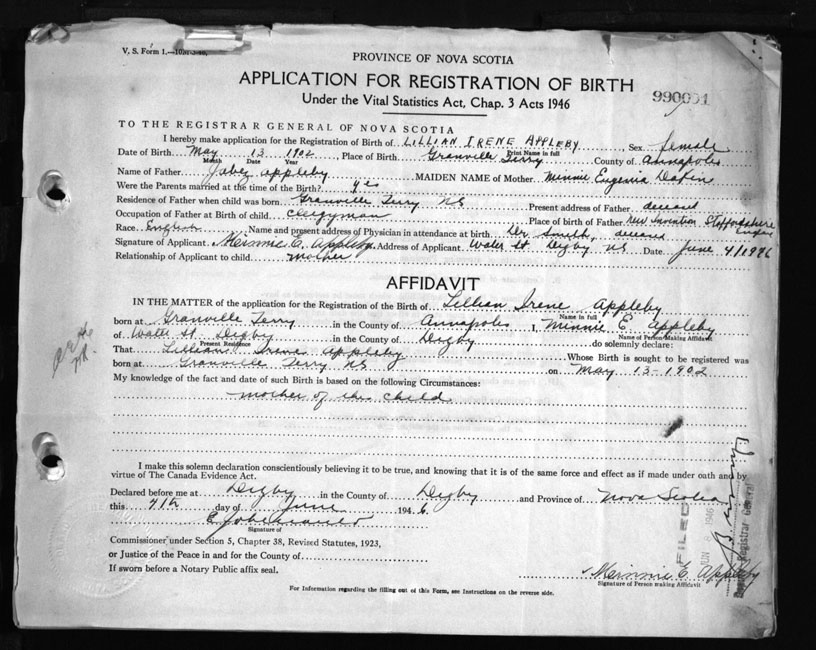 V. S. Form 1.
PROVINCE OF NOVA SCOTIA
APPLICATION FOR REGISTRATION OF BIRTH
Under the Vital Statistics Act, Chap. 3 Acts 1946
TO THE REGISTRAR GENERAL OF NOVA SCOTIA
I hereby make application for the Registration of Birth of LILLIAN IRENE APPLEBY Sex female
Print Name in full
Date of Birth May 13 1902 Place of Birth Granville Ferry County of Annapolis
Month Date Year
Name of Father Appleby MAIDEN NAME of Mother Minnie Eugenia Dakin
Were the Parents married at the time of the Birth? yes
Residence of Father when child was born Granville Ferry NS Present address of Father deceased
Occupation of Father at Birth of child clergyman Place of birth of Father New Invention Staffordshire
Race English Name and present address of Physician in attendance at birth Dr Smith, deceased
Signature of Applicant Minnie E. Appleby Address of Applicant Water St Digby NS Date June 4/1946
Relationship of Applicant to child mother
AFFIDAVIT
IN THE MATTER of the application for the Registration of the Birth of Lillian Irene Appleby
Name in full
born at Granville Ferry in the County of Annapolis I, Minnie E Appleby
Name of Person Making Affidavit
of Water St Digby in the County of Digby do solemnly declare:
Present Residence
That Lillian Irene Appleby Whose Birth is sought to be registered was
born at Granville Ferry NS on May 13-1902
My knowledge of the fact and date of such Birth is based on the following Circumstances:
mother of the child
I make this solemn declaration conscientiously believing it to be true, and knowing that it is of the same force and effect as if made under oath and by
virtue of The Canada Evidence Act.
Declared before me at Digby in the County of Digby and Province of Nova Scotia
this 4th day of June 1946
Signature of
Commissioner under Section 5, Chapter 38, Revised Statutes, 1923,
or Justice of the Peace in and for the County of
If sworn before a Notary Public affix seal.
Minnie E. Appleby
Signature of Person making Affidavit
For Information regarding the filling out of this Form, see Instructions on the reverse side.
FILED
JUN 8 1946
Deputy Registrar General